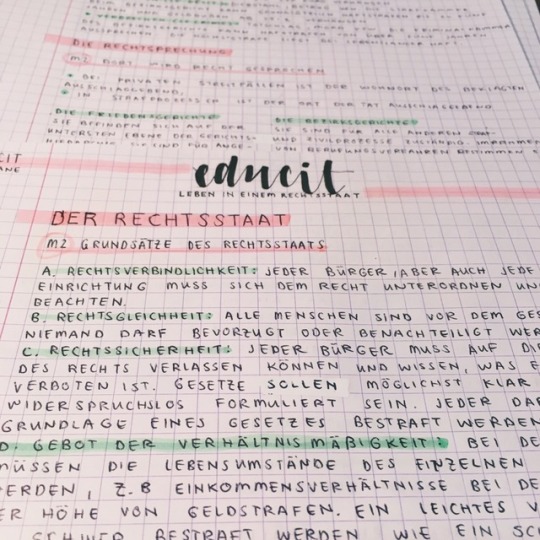 DIE RECHTSPRECHUNG
M2 DORT WIRD RECHT GESPROCHEN
• BEI PRIVATEN STREITFÄLLEN IST DER WOHNORT DES BEKLAGTEN
AUSSCHLAGGEBEND.
• IN STRAFPROZESSEN IST DER ORT DER TAT AUSSCHLAGGEBEND
DIE FRIEDENSGERICHTE
SIE BEFINDEN SICH AUF DER
UNTERSTEN EBENE DER GERICHTS-
HIERARCHIE. SIE SIND FÜR ANGE-
DIE BEZIRKSGERICHTE
SIE SIND FÜR ALLE ANDEREN
UND ZIVILPROZESSE ZUSTÄNDIG.
VON BERUFUNGSVERFAHREN
educit
LEBEN IN EINEM RECHTSSTAAT
DER RECHTSSTAAT
M2 GRUNDSÄTZE DES RECHTSSTAATS
A. RECHTSVERBINDLICHKEIT: JEDER BÜRGER, ABER AUCH JEDE
EINRICHTUNG MUSS SICH DEM RECHT UNTERORDNEN UN
BEACHTEN.
B. RECHTSGLEICHHEIT: ALLE MENSCHEN SIND VOR DEM GES
NIEMAND DARF BEVORZUGT ODER BENACHTEILIGT WER
C. RECHTSSICHERHEIT: JEDER BÜRGER MUSS AUF DIE
DES RECHTS VERLASSEN KÖNNEN UND WISSEN, WAS E
VERBOTEN IST. GESETZE SOLLEN MÖGLICHST KLAR
WIDERSPRUCHSLOS FORMULIERT SEIN. JEDER DAR
GRUNDLAGE EINES GESETZES BESTRAFT WERDEN
D. GEBOT DER VERHÄLTNISMÄßIGKEIT: BEI DE
MÜSSEN DIE LEBENSUMSTÄNDE DES EINZELNEN
ERDEN, Z.B EINKOMMENSVERHÄLTNISSE BEI DE
ER HÖHE VON GELDSTRAFEN. EIN LEICHTES V
SCHWER BESTRAFT WERDEN WIE EIN SC